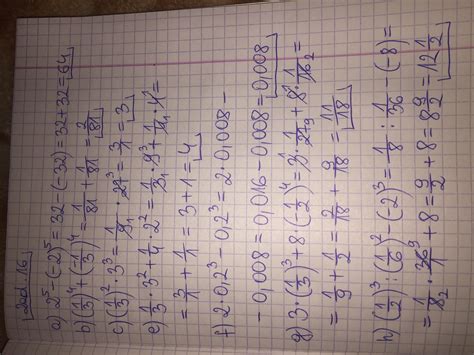 Zad. 16
a) 2⁵ - (-2)⁵ = 32 - (-32) = 32 + 32 = 64
b) (1/3)⁴ + (1/3)⁴ = 1/81 + 1/81 = 2/81
c) (1/3)² · 3³ = 1/9 · 27³ = 3/1 = 3
e) 1/3 · 3² + 1/4 · 2² = 1/3 · 9³ + 1/4 · 4¹ =
= 3/1 + 1/1 = 3 + 1 = 4
f) 2 · 0,2³ - 0,2³ = 2 · 0,008 -
- 0,008 = 0,016 - 0,008 = 0,008
g) 3 · (1/3)³ + 8 (1/2)⁴ = 3 · 1/27 + 8 · 1/16 =
= 1/9 + 1/2 = 2/18 + 9/18 = 11/18
h) (1/2)³ : (1/6)² - (-2)³ = 1/8 : 1/36 - (-8) =
= 1/8 · 36/1 + 8 = 9/2 + 8 = 8 9/2 = 12 1/2